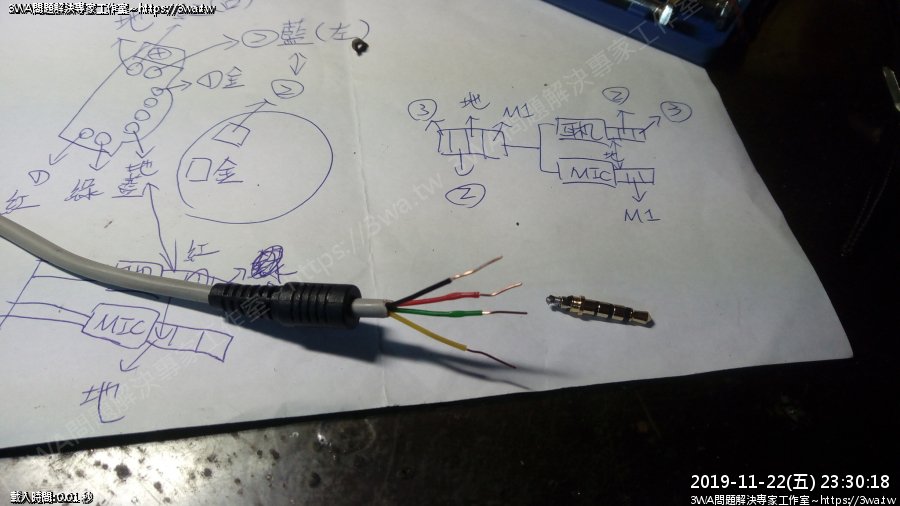 3WA問題解決專家工作室~https://3wa.tw
地
② 藍(左)
②
① 金
金
紅
綠
藍
地
紅
MIC
地
③
地
M1
②
耳机
②
③
地
MIC
M1
3WA問題解決專家工作室~https://3wa.tw
載入時間:0.01 秒
2019-11-22(五) 23:30:18
3WA問題解決專家工作室~https://3wa.tw